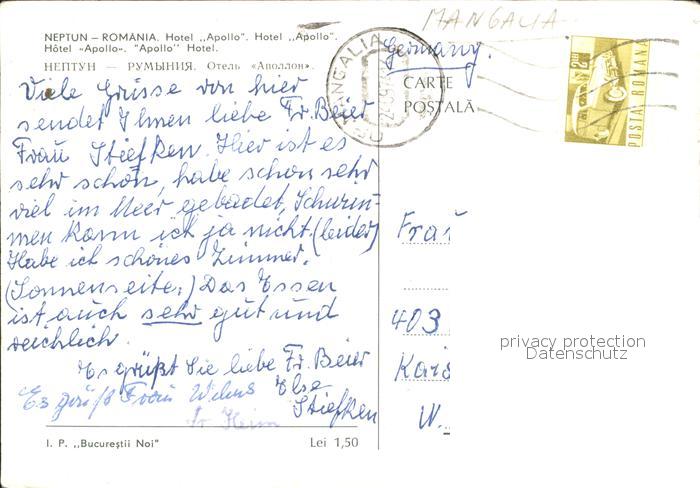 NEPTUN – ROMANIA. Hotel „Apollo". Hotel „Apollo".
Hôtel «Apollo». "Apollo" Hotel.
НЕПТУН — РУМЫНИЯ. Отель «Аполлон».
Viele Grüsse von hier
sendet Ihnen liebe Fr. Beier
Frau Stiefken. Hier ist es
sehr schön, habe schon sehr
viel im Meer gebadet, Schwim-
men kann ich ja nicht (leider)
Habe ich schönes Zimmer.
(Sonnenseite:) Das Essen
ist auch sehr gut und
reichlich.
Es grüßt Sie liebe Fr. Beier
Else
Stiefken
Es grüßt Frau
Fr. Heim
I. P. „Bucureştii Noi"
Lei 1,50
MANGALIA
Germany.
MANGALIA
CARTE
POŞTALĂ
POSTA ROMANA
Frau
403
W.
privacy protection
Datenschutz